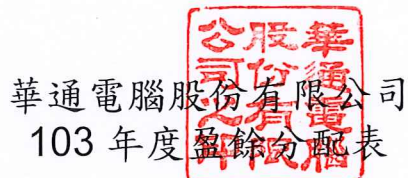 華通電腦股份有限公司
103 年度盈餘分配表
華通電腦
股份有限
公司之印